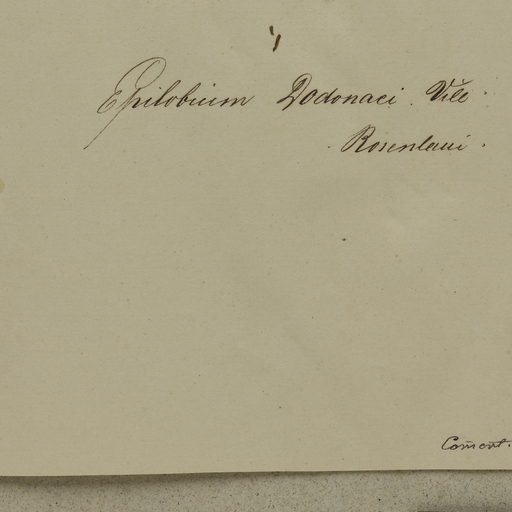 Epilobium Dodonaei. Vill.
Rosenlaui.
Coment.